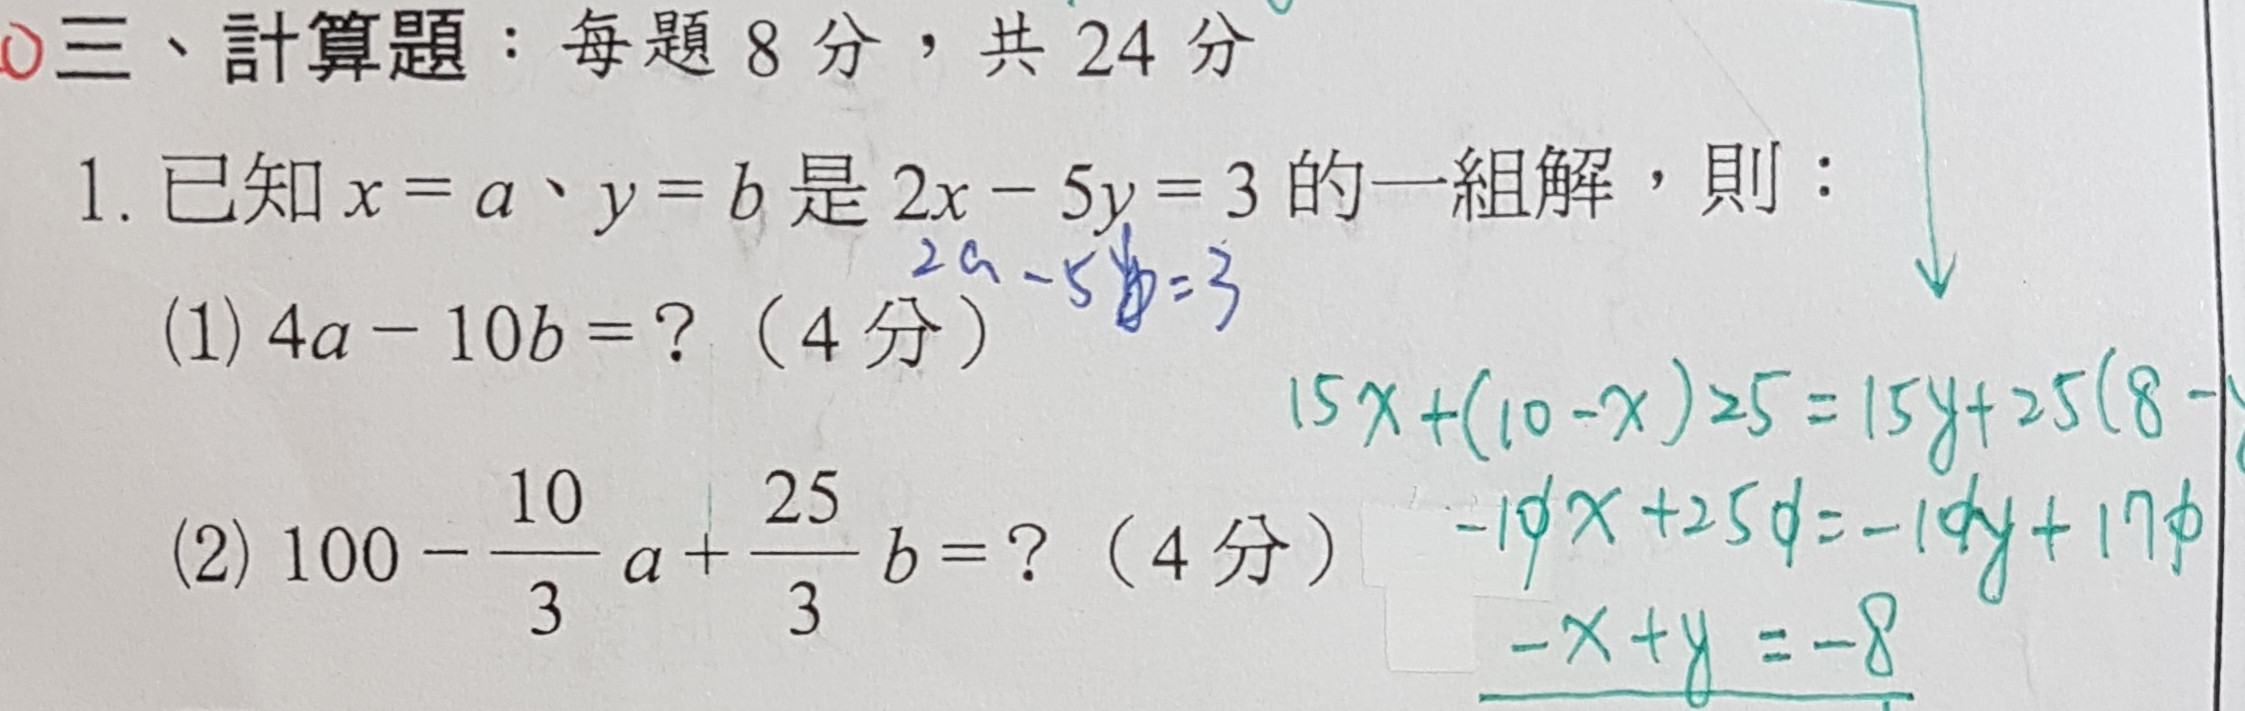 三、計算題：每題 8 分，共 24 分
1. 已知 x = a、y = b 是 2x − 5y = 3 的一組解，則：
2a - 5b = 3
(1) 4a − 10b = ?（4 分）
15x + (10 - x) 25 = 15y + 25(8 -
(2) 100 − 10/3 a + 25/3 b = ?（4 分）
-10x + 250 = -10y + 170
-x + y = -8